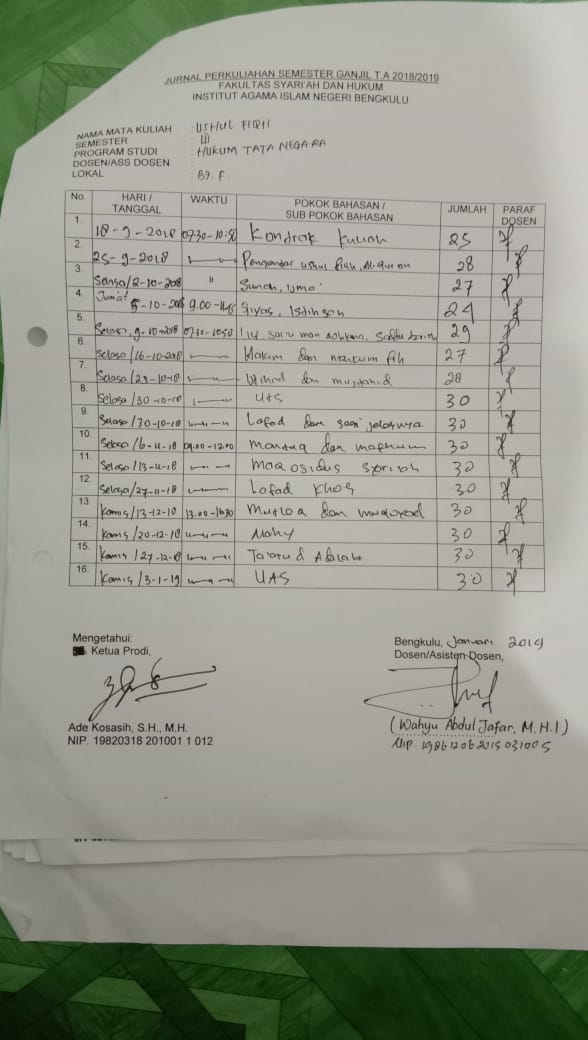 JURNAL PERKULIAHAN SEMESTER GANJIL T.A 2018/2019
FAKULTAS SYARI'AH DAN HUKUM
INSTITUT AGAMA ISLAM NEGERI BENGKULU
NAMA MATA KULIAH : USHUL FIQH
SEMESTER : III
PROGRAM STUDI : HUKUM TATA NEGARA
DOSEN/ASS DOSEN :
LOKAL :
No. HARI / TANGGAL WAKTU POKOK BAHASAN / SUB POKOK BAHASAN JUMLAH PARAF DOSEN
1. 18-9-2018 0730-10:50 Kondrak Kuliah 25
2. 25-9-2018 Pengantar ushul fiqh, Al-quran 28
3. 2-10-2018 " Sunah, 27
4. Jum'at 5-10-2018 9.00- Qiyas, Istihsan 24
5. Selasa, 9-10-2018 0730-1050 29
6. Selasa/16-10-2018 Hakim dan 27
7. Selasa/23-10-18 Ijtihad dan mujtahid 28
8. Selasa/30-10-18 UTS 30
9. Selasa/30-10-18 Lafad dan segi 30
10. Selasa/6-11-18 09.00-12.00 Mantuq dan mafhum 30
11. Selasa/13-11-18 Maqosidus syariah 30
12. Selasa/27-11-18 Lafad Khos 30
13. Kamis/13-12-18 13.00-1630 Mutlaq dan muqoyad 30
14. Kamis/20-12-18 Nahy 30
15. Kamis/27-12-18 Ta'arud Adalah 30
16. Kamis/3-1-19 UAS 30
Mengetahui:
Ketua Prodi,
Ade Kosasih, S.H., M.H.
NIP. 19820318 201001 1 012
Bengkulu, Januari 2019
Dosen/Asisten Dosen,
(Wahyu Abdul Jafar, M.H.I)
Nip. 198612062015031005